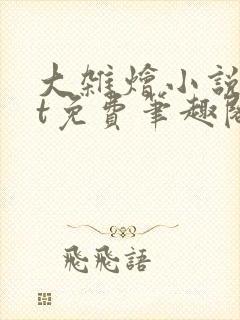 大雜燴小說
t免費筆趣閣
飛飛語